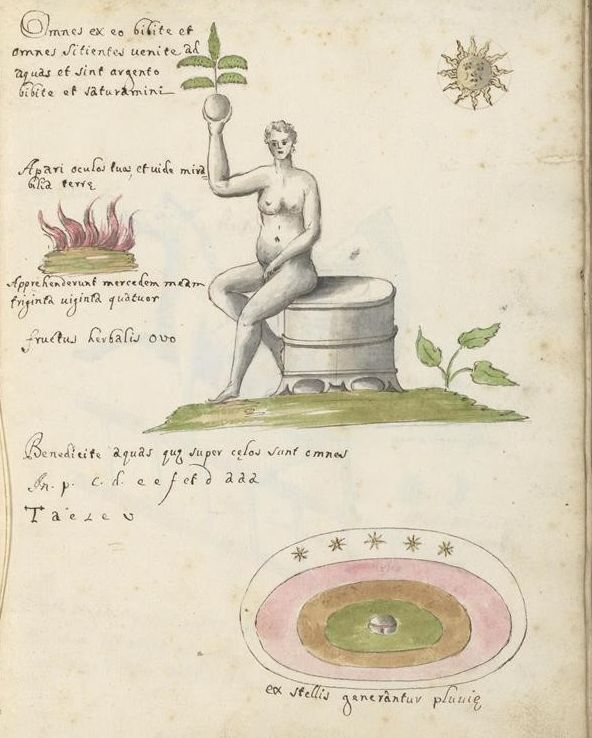 Omnes ex eo bibite et
omnes sitientes venite ad
aquas et sint argento
bibite et saturamini
Apari oculos tuos et uide mira
bilia terrę
Apprehenderunt mercedem meam
triginta uiginta quatuor
fructus herbalis ovo
Benedicite aquas quę super cęlos sunt omnes
In. p. c. d. e e f et d a a a
T a e z e v
ex stellis generantur pluuię